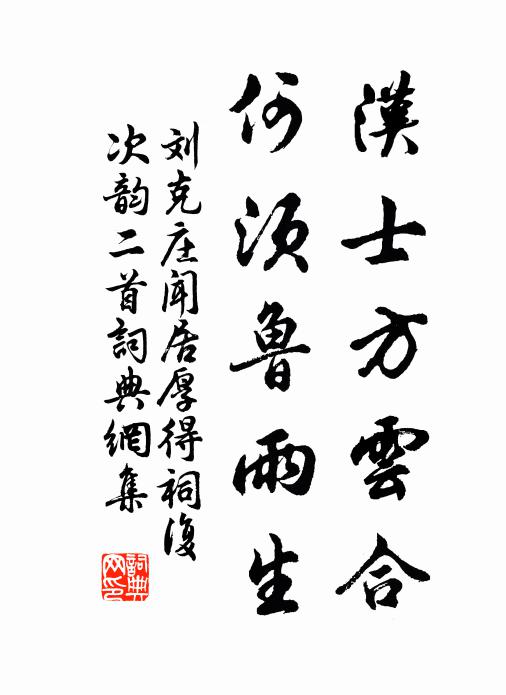 漢士方雲合
何須魯兩生
刘克庄聞居厚得祠復
次韵二首詞典網集
詞典
网印